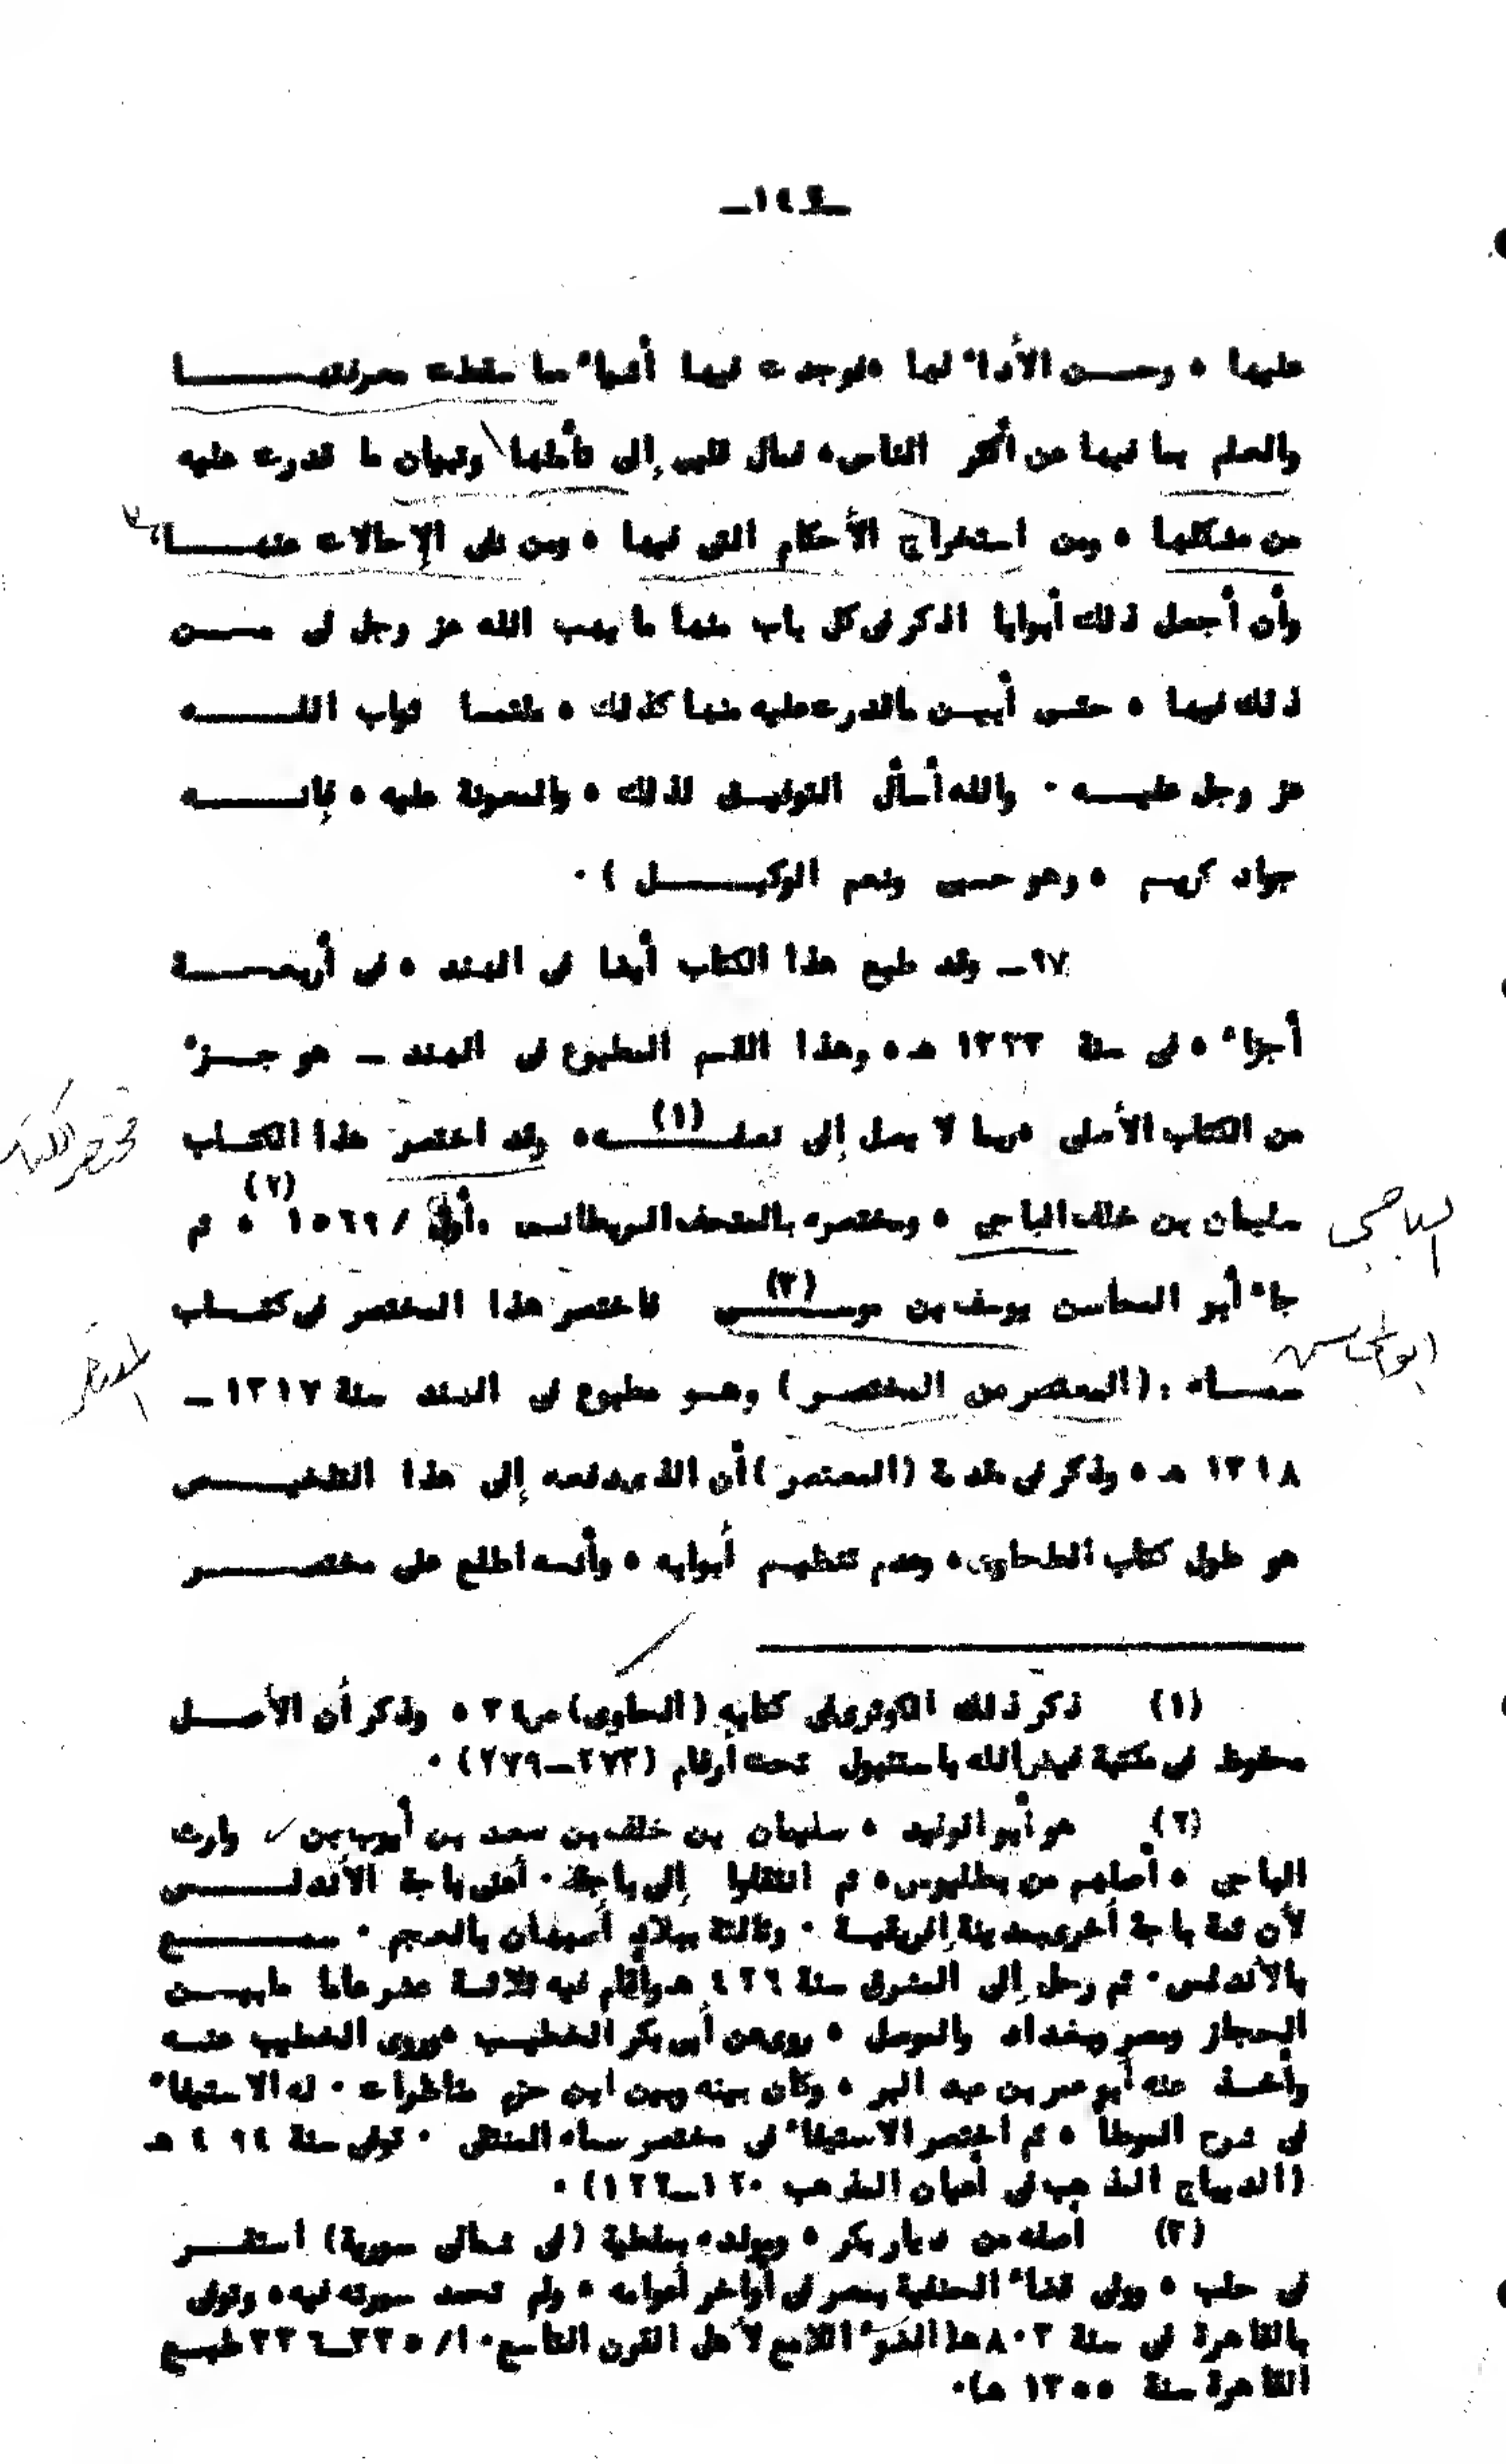 ـ١٤٢ـ
عليها ، وحسن الأداء لها ، فوجدت فيها أشياء مما سقطت معرفتهـا
والعلم بما فيها عن أكثر الناس ، فمال قلبى إلى تأملها وتبيان ما قدرت عليه
من مشكلها ، ومن استخراج الأحكام التى فيها ، ومن نفى الإحالات عنهـا ،
وأن أجعل ذلك أبوابا اذكر فى كل باب منها ما يهب الله عز وجل لى مـن
ذلك فيها ، حتـى أبيـن ماقدرت عليه منها كذلك ، ملتمسا ثواب اللـه
عز وجل عليـه . والله أسأل التوفيـق لذلك ، والمعونة عليه ، فإنـه
جواد كريـم ، وهو حسبى ونعم الوكيـل ) .
٩٧ـ وقد طبع هذا الكتاب أيضا فى الهند ، فى أربعـة
أجزاء ، فى سنة ١٣٣٣ هـ ، وهذا القسم المطبوع فى الهند ـ هو جـزء
من الكتاب الأصلى ربما لا يصل إلى نصفـه(١) ، وقد اختصر هذا الكتـاب
سليمان بن خلف الباجى ، ومختصره بالمتحف البريطانـى أول / ١٥٦٩(٢) ، ثم
جاء أبو المحاسن يوسف بن موسـى(٣) فاختصر هذا المختصر فى كتـاب
سمـاه : (المعتصر من المختصـر) وهـو مطبوع فى الهند سنة ١٣١٧ ـ
١٣١٨ هـ ، وذكر فى مقدمة (المعتصر) أن الذى دفعه إلى هذا التلخيـص
هو طول كتاب الطحاوى ، وعدم تنظيـم أبوابه ، وأنـه اطلع على مختصـر
مختصر الكتاب
الباجى
ابو المحاسن
المعتصر
(١) ذكر ذلك الكوثرى فى كتابه (الحاوى) ص٣٤ ، وذكر أن الأصـل
محفوظ فى مكتبة فيض الله باستنبول تحت أرقام (٢٧٣ـ٢٧٩) .
(٢) هو أبو الوليد ، سليمان بن خلف بن سعد بن أيوب بن وارث
الباجى ، أصلهم من بطليوس ، ثم انتقلوا إلى باجة . أعنى باجة الأندلـس
لأن ثمة باجة أخرى بمدينة إفريقيـة . وثالثة ببلاد أصبهان بالعجم . سمـع
بالأندلس . ثم رحل إلى المشرق سنة ٤٢٦ هـ وأقام فيه ثلاثـة عشر عاما مابيـن
الحجاز ومصر وبغداد والموصل ، روى عن أبى بكر الخطيـب ، وروى الخطيب عنـه
وأخـذ عنه أبو عمر بن عبد البر ، وكان بينه وبين ابن حزم مناظرات . له الاستيفاء
فى شرح الموطأ ، ثم اختصر الاستيفاء فى مختصر سماه المنتقى . توفى سنة ٤٩٤ هـ
(الديباج المذهب فى أعيان المذهب ١٢٠ـ١٢٢) .
(٣) أصله من ديار بكر ، ومولده بملطية (فى شمالى سورية) استقـر
فى حلب ، وولى قضاء الحنفية بمصر فى أواخر أعوامه ، ولم تحمد سيرته فيه ، وتوفى
بالقاهرة فى سنة ٨٠٣ هـ (الضوء اللامع لأهل القرن التاسع ١٠/ ٣٣٥ـ٣٣٦ طبـع
القاهرة سنة ١٣٥٥ هـ) .